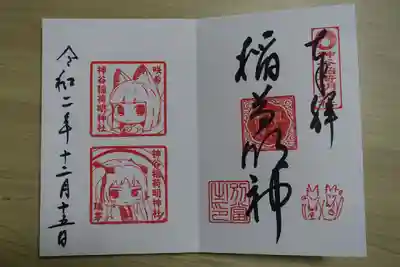 奉拝
稲荷明神
咲希
神谷稲荷明神社
神谷稲荷明神社
令和二年十二月十五日